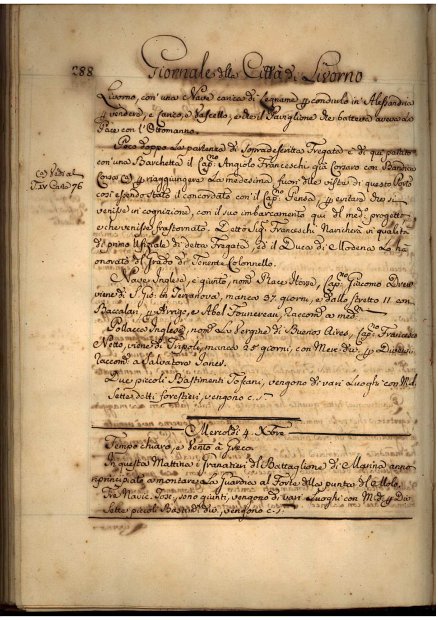 288 Giornale della Città di Livorno
Livorno, con' una Nave carica di Legname p condurlo in Alessandria
p vendere, e Carico, e Vascello, e che il Paviglione che batteva aveva la
Pace con l'Ottomanno.
Poco doppo La partenza di Sopradescritta Fregata e di qui partito
con una Barchetta il Cap. Angiolo Franceschi già Corsaro con Bandiera
(a) Vedi al
Corso (a) p raggiungere La medesima fuori di vista di questo Porto
Tav Carta 76
così essendo stato il concordato con il Cap. p evitare che si
venisse in cognizione, con il suo imbarcamento del med. progetto
e che venisse frastornato. Detto Sig. Franceschi in qualità
di primo Ufiziale di detta Fregata, ed il Duca di Modena La ha
onorato del Grado di Tenente Colonnello.
Nave Inglese, è giunto, nom. Cap. Giacomo
viene di S. Gio: in Terranova, manca 37. giorni, e dallo Stretto 11 con
Baccalari, p Arrigo, e Abel Fonnereau, Raccom. a med.
Pollacca Inglese, nom. La Vergine di Buenos Aires, Cap. Francesco
Netto, viene di Tripoli, manca 25 giorni, con Merci div. p Diversi,
Raccom. a Salvatore Janer.
Due piccoli Bastimenti Toscani, vengono di vari Luoghi con M. d.
Sette detti forestieri, vengono c. s.
Mercoldì 4. Xbre
Tempo chiaro, e Vento à Greco
In questa Mattina i Granatieri del Battaglione di Marina anno
principiato a montare La Guardia al Forte della punta del Molo.
Tre Navic. Tosc. sono giunti, vengono di vari Luoghi con M. d. p Div.
Sette piccoli Bastim. div. vengono c. s.